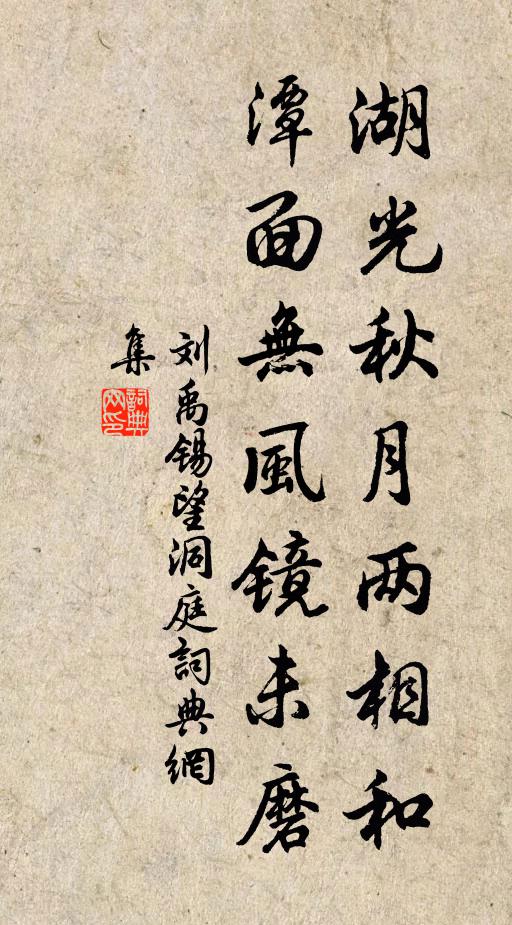 湖光秋月两相和
潭面無風镜未磨
刘禹锡望洞庭詞典網
集
詞典
网印